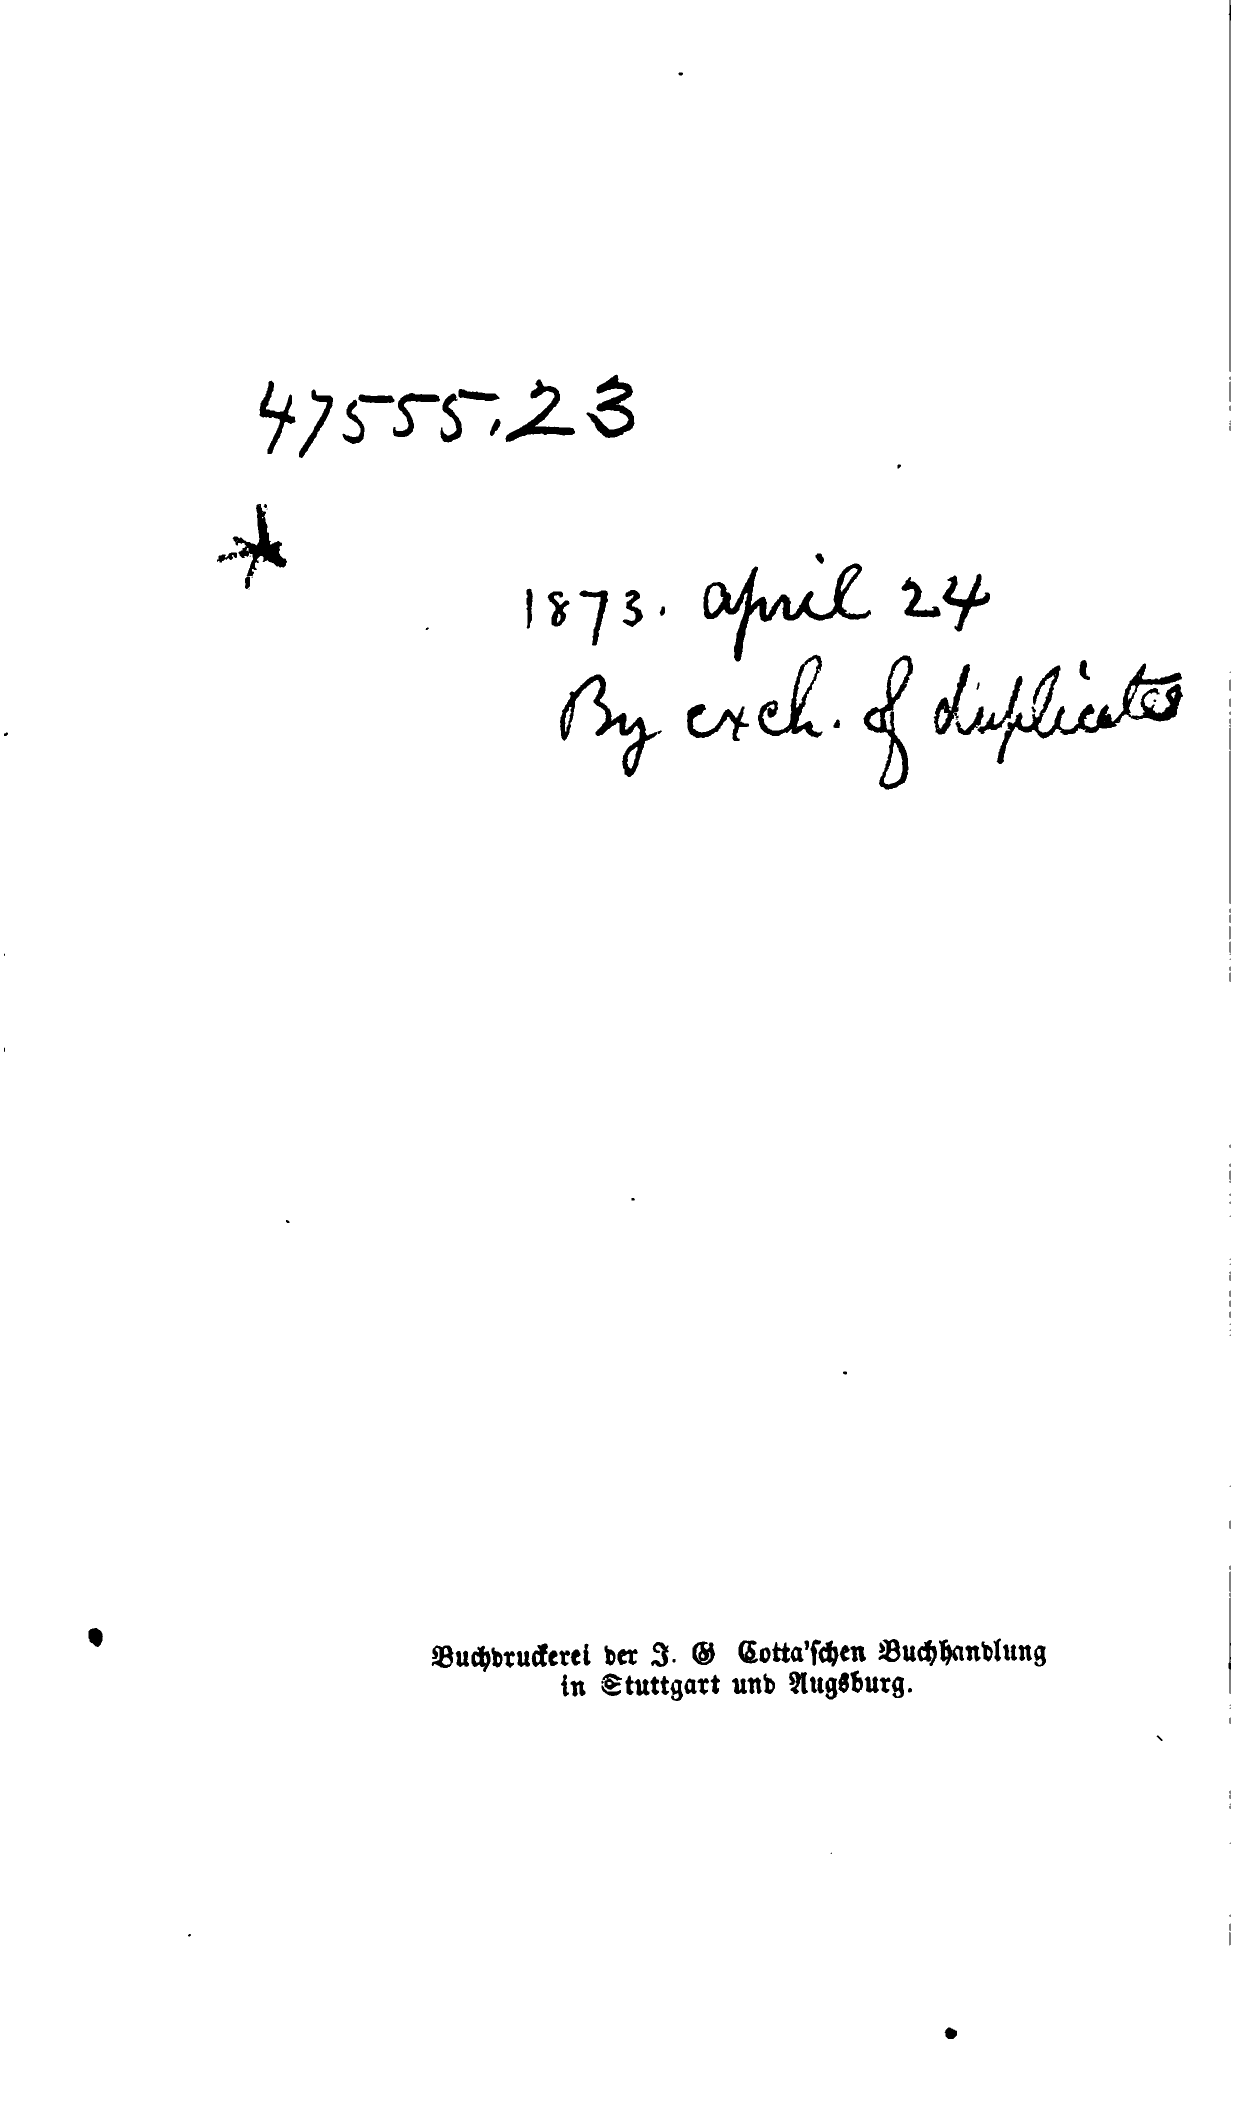 47555.23
*
1873. april 24
By exch. of duplicates
Buchdruckerei der J. G Cotta'schen Buchhandlung
in Stuttgart und Augsburg.